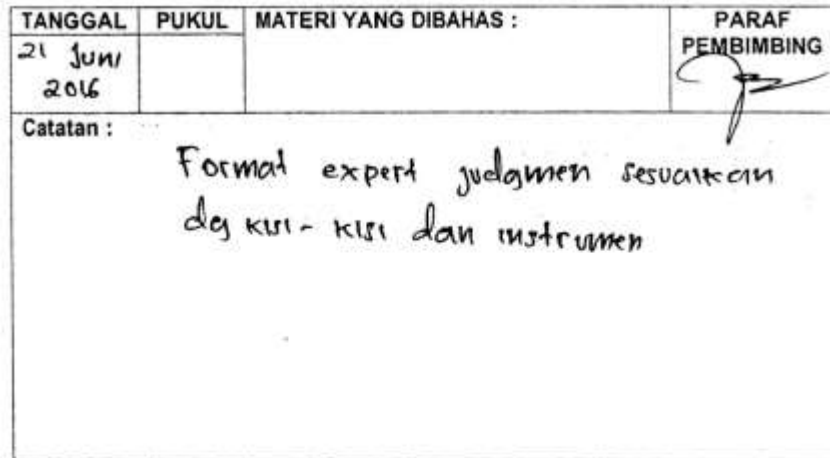 TANGGAL PUKUL MATERI YANG DIBAHAS : PARAF
PEMBIMBING
21 Juni
2016
Catatan :
Format expert judgmen sesuaikan
dg kisi - kisi dan instrumen